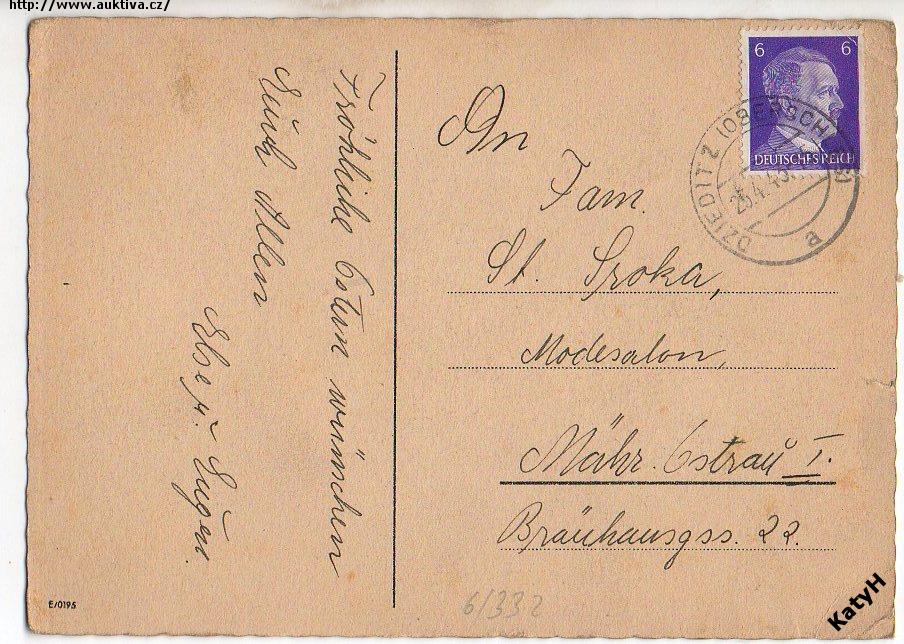 http://www.auktiva.cz/
Fröhliche Ostern wünschen
Euch Allen
Else u. Eugen.
6 6
DEUTSCHES REICH
DZIEDITZ (OBERSCHLES)
a
An
Fam.
St. Sroka,
Modesalon,
Mähr. Ostrau I.
Bräuhausgss. 22.
E/0195
6/332
KatyH